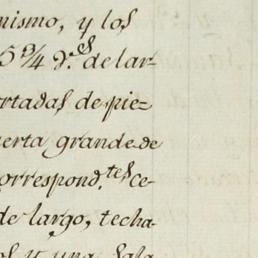 mismo, y los
5 3/4 v.s de lar-
ortadas de pie-
uerta grande de
correspond.tes ce-
de largo, techa-
os y una sala